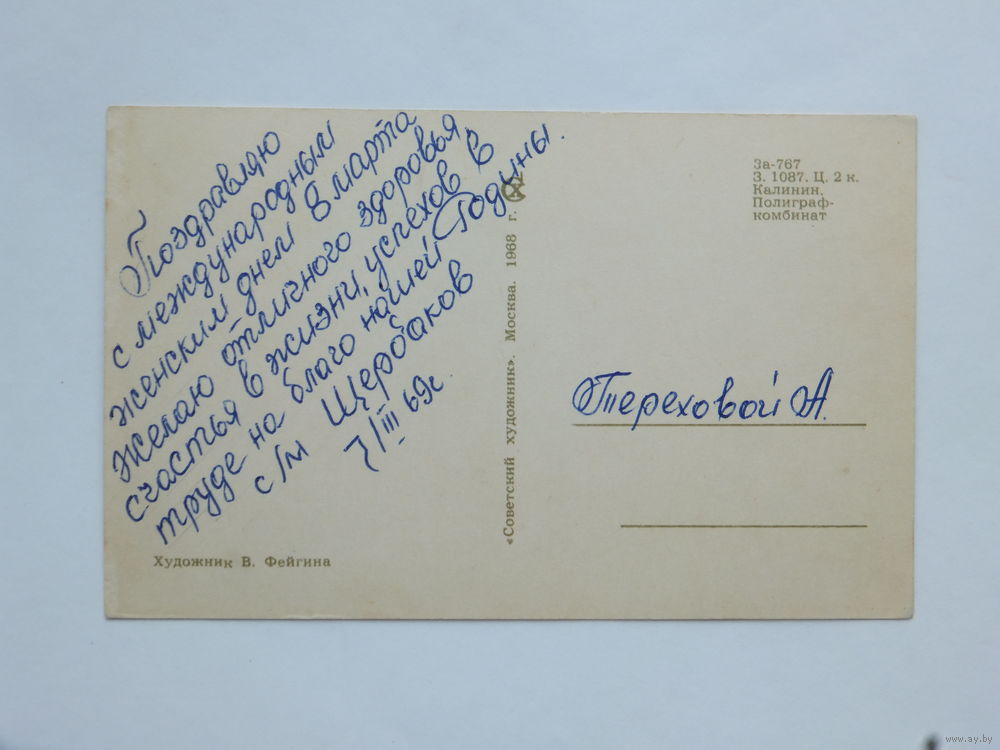 Поздравляю
с международным
женским днем 8 марта
желаю отличного здоровья,
счастья в жизни, успехов в
труде на благо нашей Родины.
с/м Щербаков
7/III 69г
Художник В. Фейгина
«Советский художник». Москва. 1968 г.
За-767
З. 1087. Ц. 2 к.
Калинин.
Полиграф-
комбинат
Тереховой А.
www.ay.by